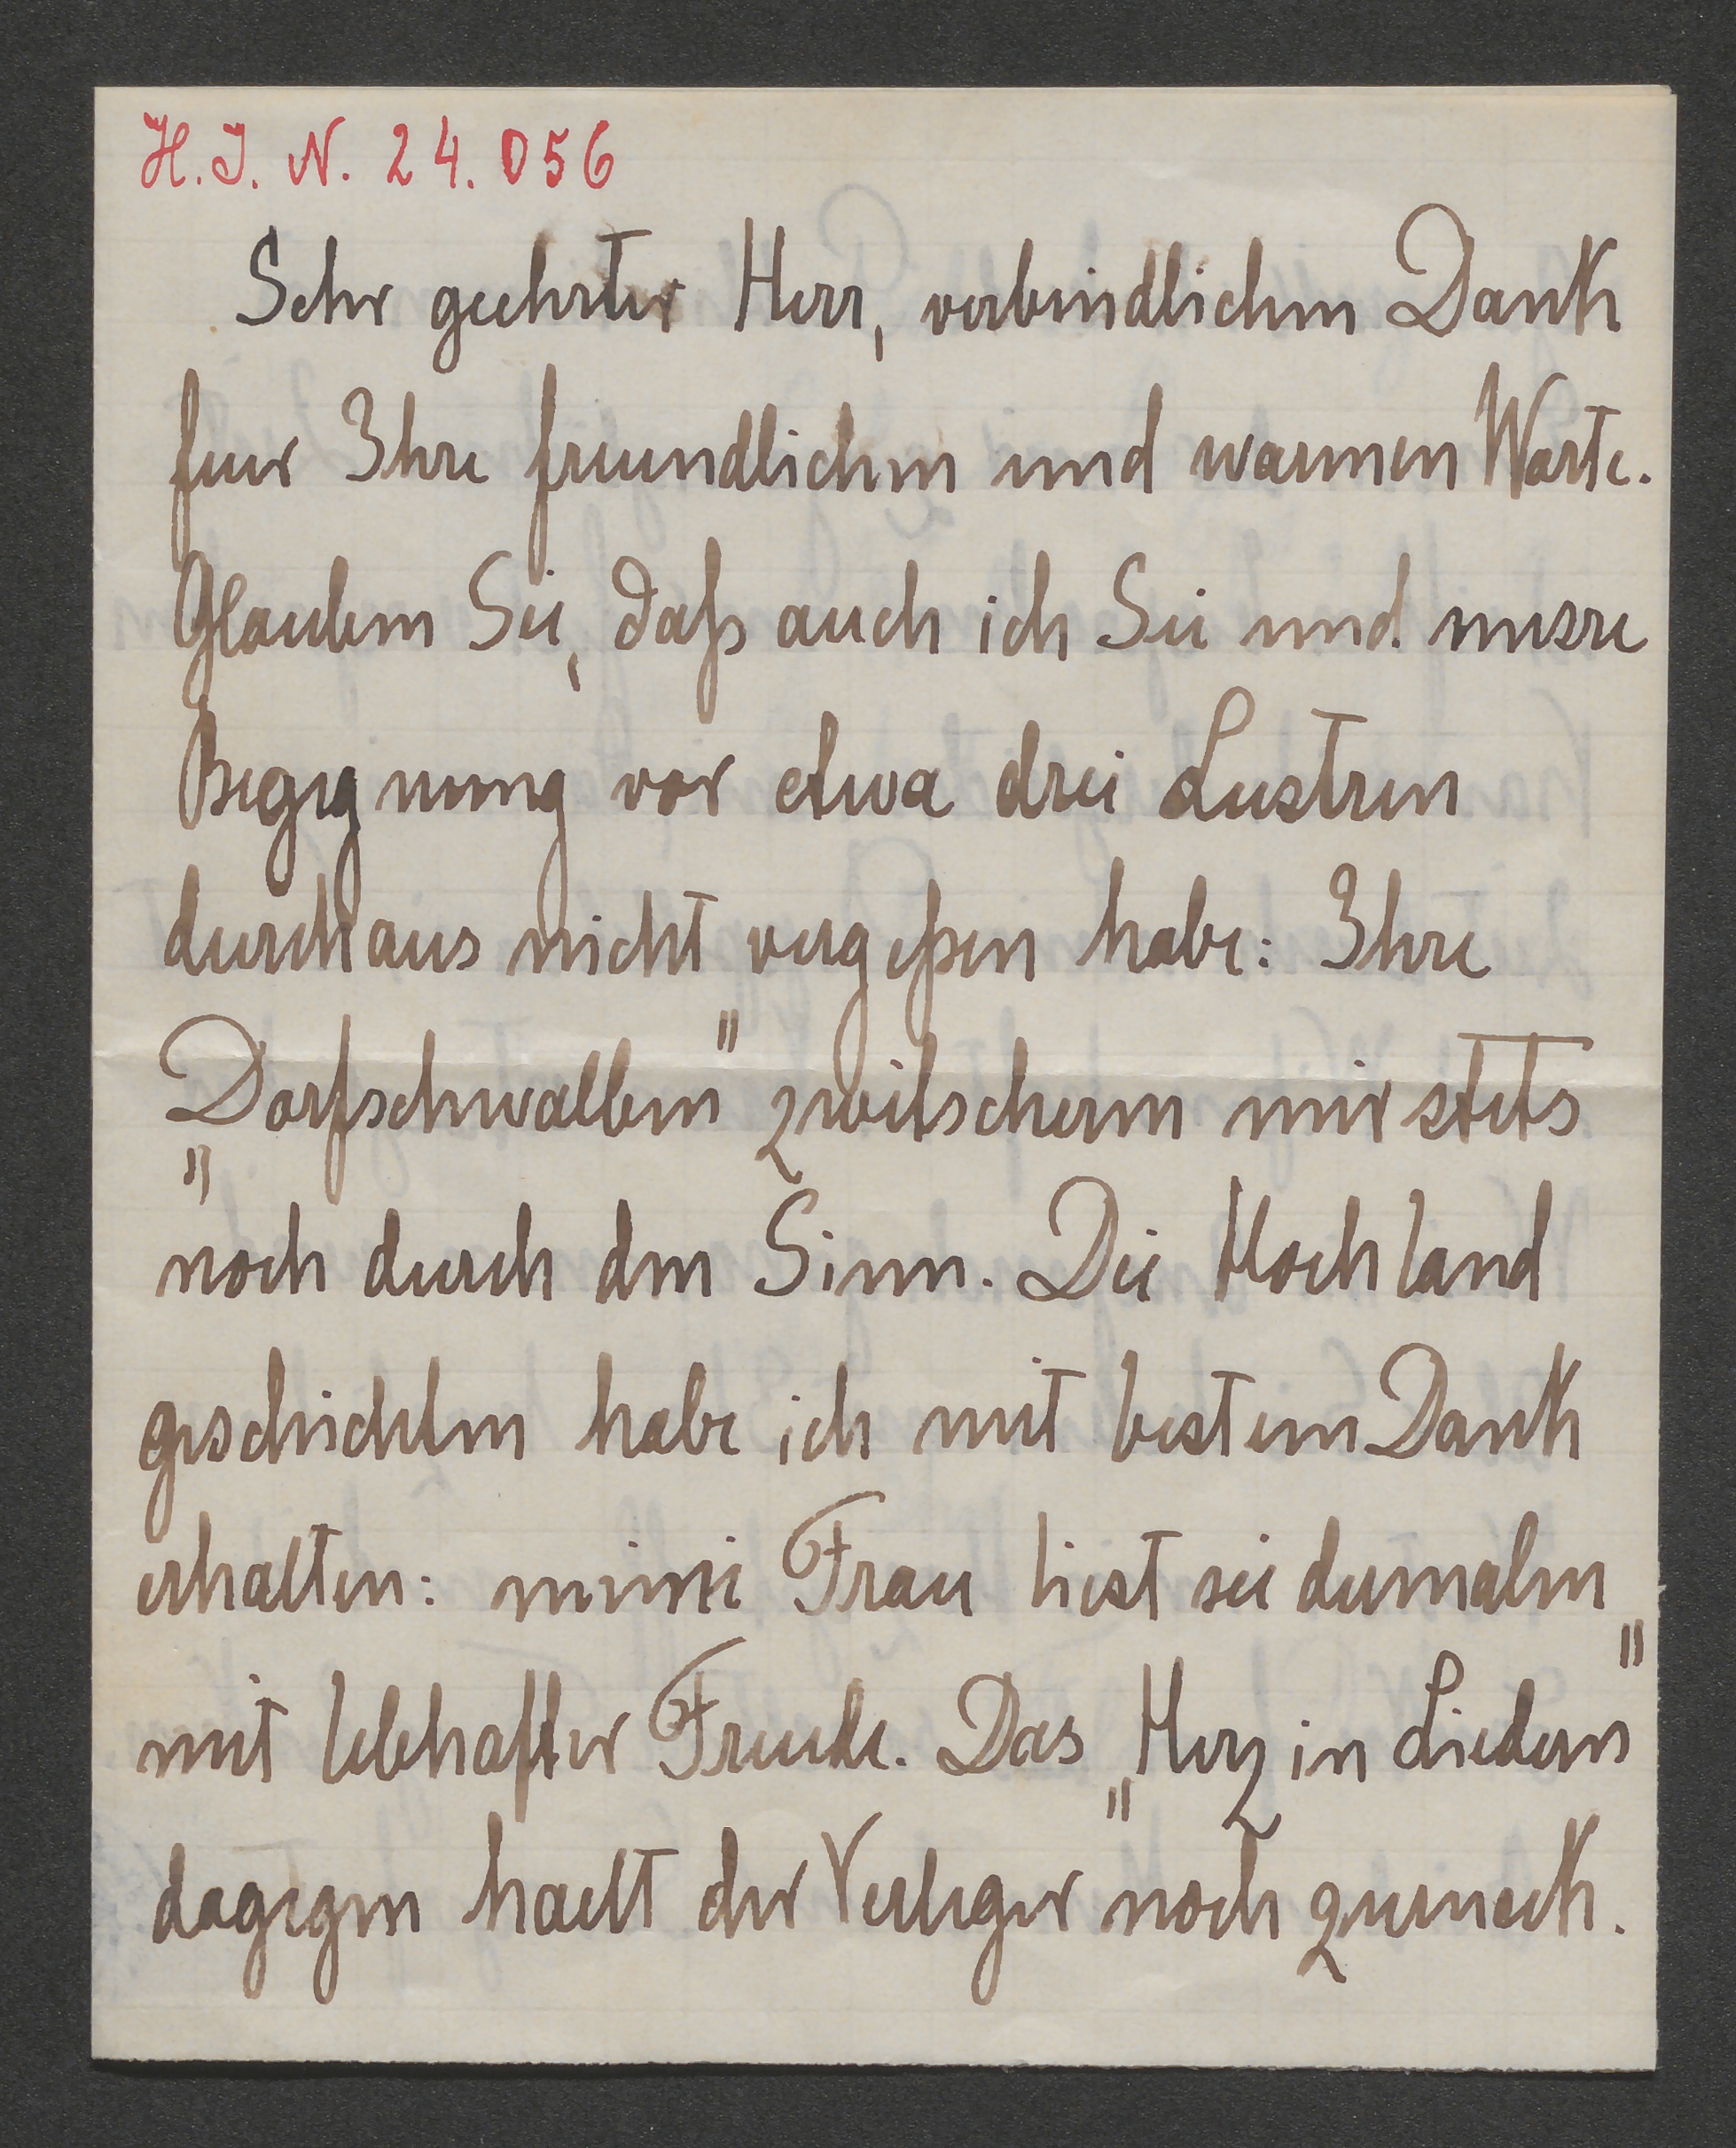 H. I. N. 24.056
Sehr geehrter Herr, verbindlichen Dank
fuer Ihre freundlichen und warmen Worte.
Glauben Sie, daß auch ich Sie und unsre
Begegnung vor etwa drei Lustren
durchaus nicht vergeßen habe: Ihre
„Dorfschwalben" zwitschern mir stets
noch durch den Sinn. Die Hochland
geschichten habe ich mit bestem Dank
erhalten: meine Frau liest sie dermalen
mit lebhafter Freude. Das „Herz in Liedern"
dagegen haelt der Verleger noch zurueck.